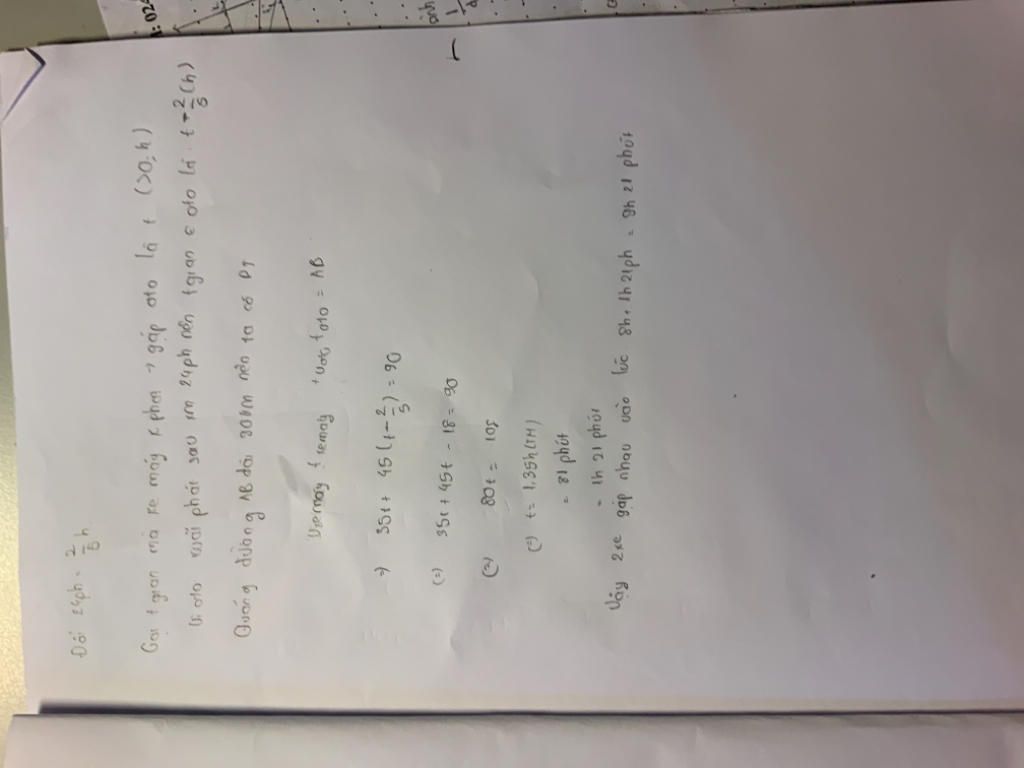 Đổi 24ph = 2/5 h
Gọi tgian mà xe máy x phát → gặp oto là t (>0; h)
Vì oto xuất phát sau xm 24ph nên tgian c oto là t - 2/5 (h)
Quãng đường AB dài 90km nên ta có pt
Vxemáy t xemáy + Voto t oto = AB
=) 35t + 45(t - 2/5) = 90
(=) 35t + 45t - 18 = 90
(=) 80t = 108
(=) t = 1,35h (TM)
= 81 phút
= 1h 21 phút
Vậy 2 xe gặp nhau vào lúc 8h + 1h21ph = 9h 21 phút